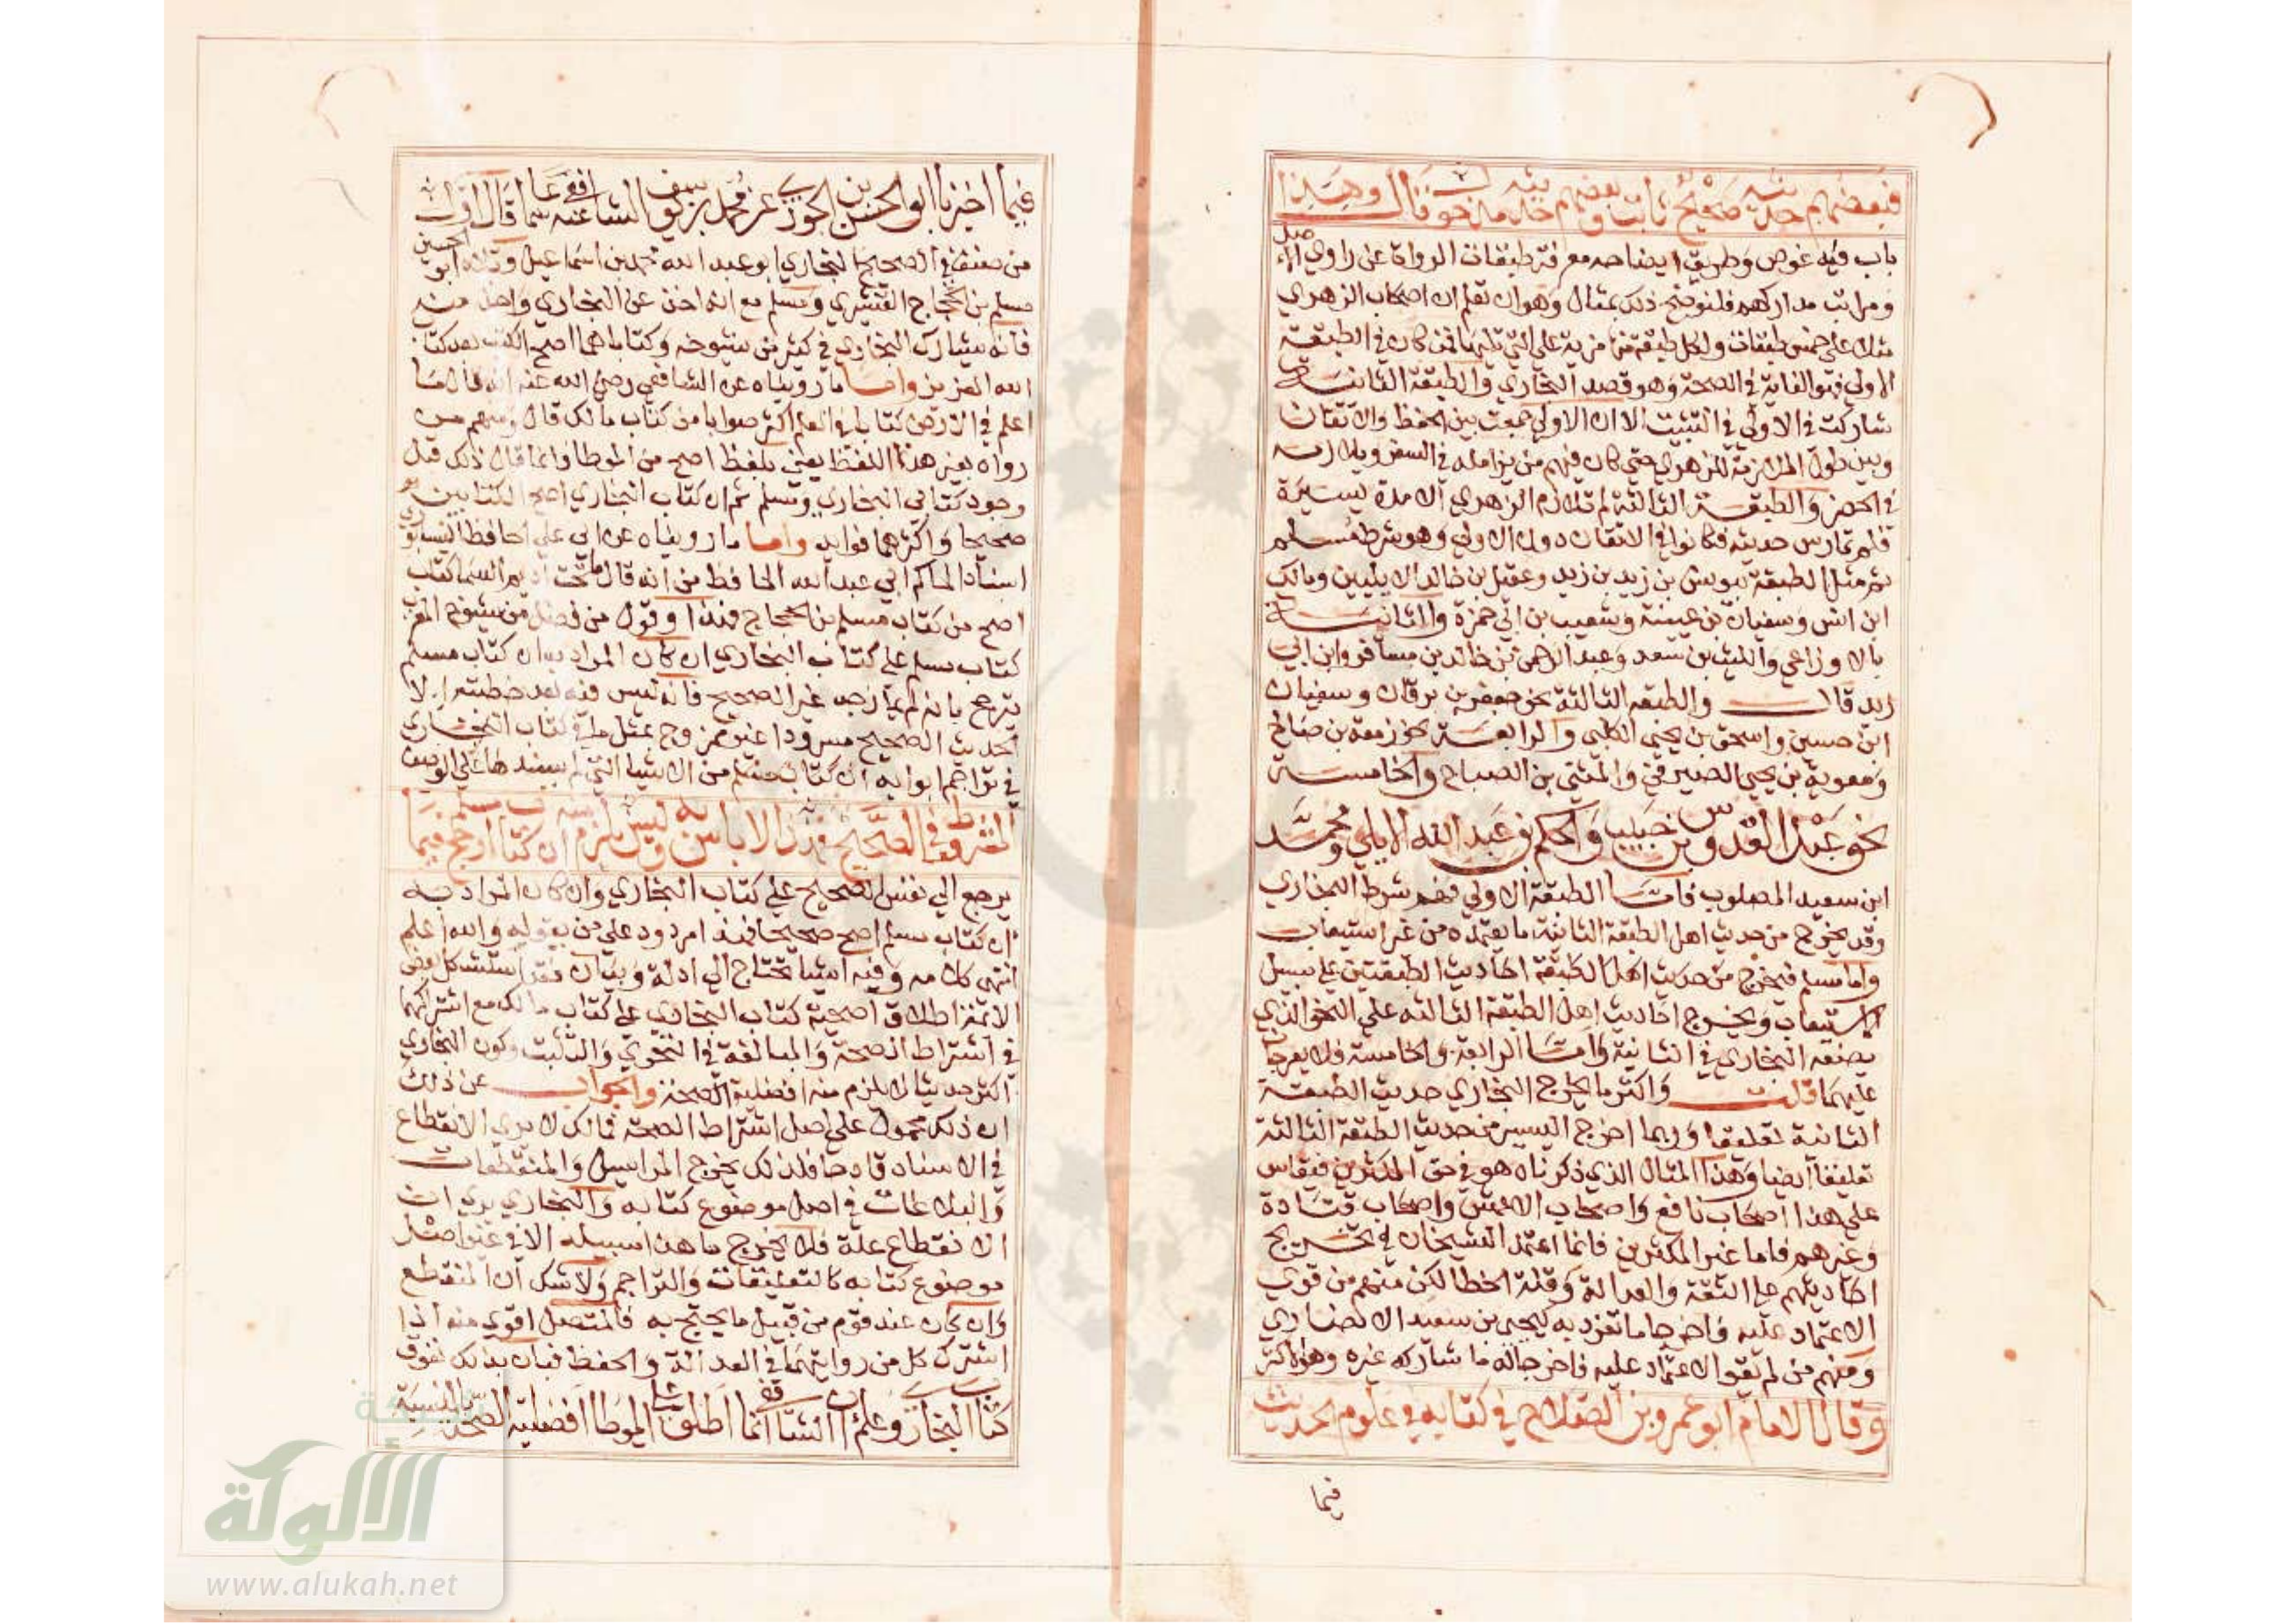 فبعضهم حديثه صحيح ثابت وبعضهم حديثه مدخول قال وهذا
باب فيه غموض وطريق ايضاحه معرفة طبقات الرواة عن راوي الاصل
ومراتب مداركهم فلنوضح ذلك بمثال وهو ان تعلم ان اصحاب الزهري
مثلا على خمس طبقات ولكل طبقة منها مزية على التي تليها فمن كان في الطبقة
الاولى فهو الغاية في الصحة وهو قصد البخاري والطبقة الثانية
شاركت الاولى في التثبت الا ان الاولى جمعت بين الحفظ والاتقان
وبين طول الملازمة للزهري حتى كان فيهم من يزامله في السفر ويلازمه
في الحضر والطبقة الثالثة لم تلازم الزهري الا مدة يسيرة
فلم تمارس حديثه فكانوا في الاتقان دون الاولى وهو شرط مسلم
ثم مثل الطبقة بيونس بن زيد بن زيد وعقيل بن خالد الايليين ومالك
ابن انس وسفيان بن عيينة وشعيب بن ابي حمزة والثانية
بالاوزاعي والليث بن سعد وعبد الرحمن بن خالد بن مسافر وابن ابي
والطبقة الثالثة نحو جعفر بن برقان وسفيان
ابن حسين واسحق بن يحيى الكلبي والرابعة نحو زمعة بن صالح
ومعوية بن يحيى الصيرفي والمثنى بن الصباح والخامسة
نحو عبد القدوس بن حبيب والحكم بن عبد الله الايلي ومحمد
ابن سعيد المصلوب فاما الطبقة الاولى فهم شرط البخاري
وقد يخرج من حديث اهل الطبقة الثانية ما يعتمده من غير استيعاب
واما مسلم فيخرج من حديث اهل الطبقة احاديث الطبقتين على سبيل
الاستيعاب ويخرج احاديث اهل الطبقة الثالثة على النحو الذي
يصنعه البخاري في الثانية واما الرابعة والخامسة فلا يعرجان
عليهما قلت واكثر ما يخرج البخاري حديث الطبقة
الثانية تعليقا وربما اخرج اليسير من حديث الطبقة الثالثة
تعليقا ايضا وهذا المثال الذي ذكرناه هو في حق المكثرين فيقاس
على هذا اصحاب نافع واصحاب الاعمش واصحاب قتادة
وغيرهم فاما غير المكثرين فانما اعتمد الشيخان في تخريج
احاديثهم على الثقة والعدالة وقلة الخطا لكن منهم من قوي
الاعتماد عليه فاخرجا ما تفرد به كيحيى بن سعيد الانصاري
ومنهم من لم يقو الاعتماد عليه فاخرجا له ما شاركه غيره وهو الاكثر
وقال الامام ابو عمرو بن الصلاح في كتابه في علوم الحديث
فيما
فيما اخبرنا ابو الحسن بن الجوزي عن محمد بن يوسف الشافعي عنه سماعا قال اول
من صنف في الصحيح البخاري ابو عبد الله محمد بن اسماعيل وتلاه ابو الحسين
مسلم بن الحجاج القشيري ومسلم مع انه اخذ عن البخاري واستفاد منه
فانه يشارك البخاري في كثير من شيوخه وكتاباهما اصح الكتب بعد كتاب
الله العزيز واما ما رويناه عن الشافعي رضي الله عنه انه قال ما
اعلم في الارض كتابا في العلم اكثر صوابا من كتاب مالك قال ومنهم من
رواه بغير هذا اللفظ يعني بلفظ اصح من الموطا فانما قال ذلك قبل
وجود كتابي البخاري ومسلم ثم ان كتاب البخاري اصح الكتابين
صحيحا واكثرهما فوايد واما ما رويناه عن ابي علي الحافظ النيسابوري
استاذ الحاكم ابي عبد الله الحافظ من انه قال ما تحت اديم السما كتاب
اصح من كتاب مسلم بن الحجاج فهذا وقول من فضل من شيوخ المغرب
كتاب مسلم على كتاب البخاري ان كان المراد به ان كتاب مسلم
يترجح بانه لم يمازجه غير الصحيح فانه ليس فيه بعد خطبته الا
الحديث الصحيح مسرودا غير ممزوج بمثل ما في كتاب البخاري
في تراجم ابوابه ان كتاب مسلم من الاشيا التي لم يسندها على الوصف
المشروط في الصحيح فهذا لا باس به وليس يلزم ان كتاب مسلم ارجح فيما
يرجع الى نفس الصحيح على كتاب البخاري وان كان المراد به
ان كتاب مسلم اصح صحيحا فهذا مردود على من يقوله والله اعلم
انتهى كلامه وفيه اشيا تحتاج الى ادلة وبيان فقد استشكل بعض
الائمة اطلاق اصحية كتاب البخاري على كتاب مالك مع اشتراكهما
في اشتراط الصحة والمبالغة في التحري والتثبت وكون البخاري
اكثر حديثا لا يلزم منه افضلية الصحة والجواب عن ذلك
ان ذلك محمول على اصل اشتراط الصحة فمالك لا يرى الانقطاع
في الاسناد قادحا فلذلك يخرج المراسيل والمنقطعات
والبلاغات في اصل موضوع كتابه والبخاري يرى ان
الانقطاع علة فلا يخرج ما هذا سبيله الا في غير اصل
موضوع كتابه كالتعليقات والتراجم ولا شك ان المنقطع
وان كان عند قوم من قبيل ما يحتج به فالمتصل اقوى منه اذا
اشترك كل من رواتهما في العدالة والحفظ فبان بذلك تفوق
كتاب البخاري وعلم ان الشافعي انما اطلق على الموطا افضلية الصحة بالنسبة
شبكة
الألوكة
www.alukah.net